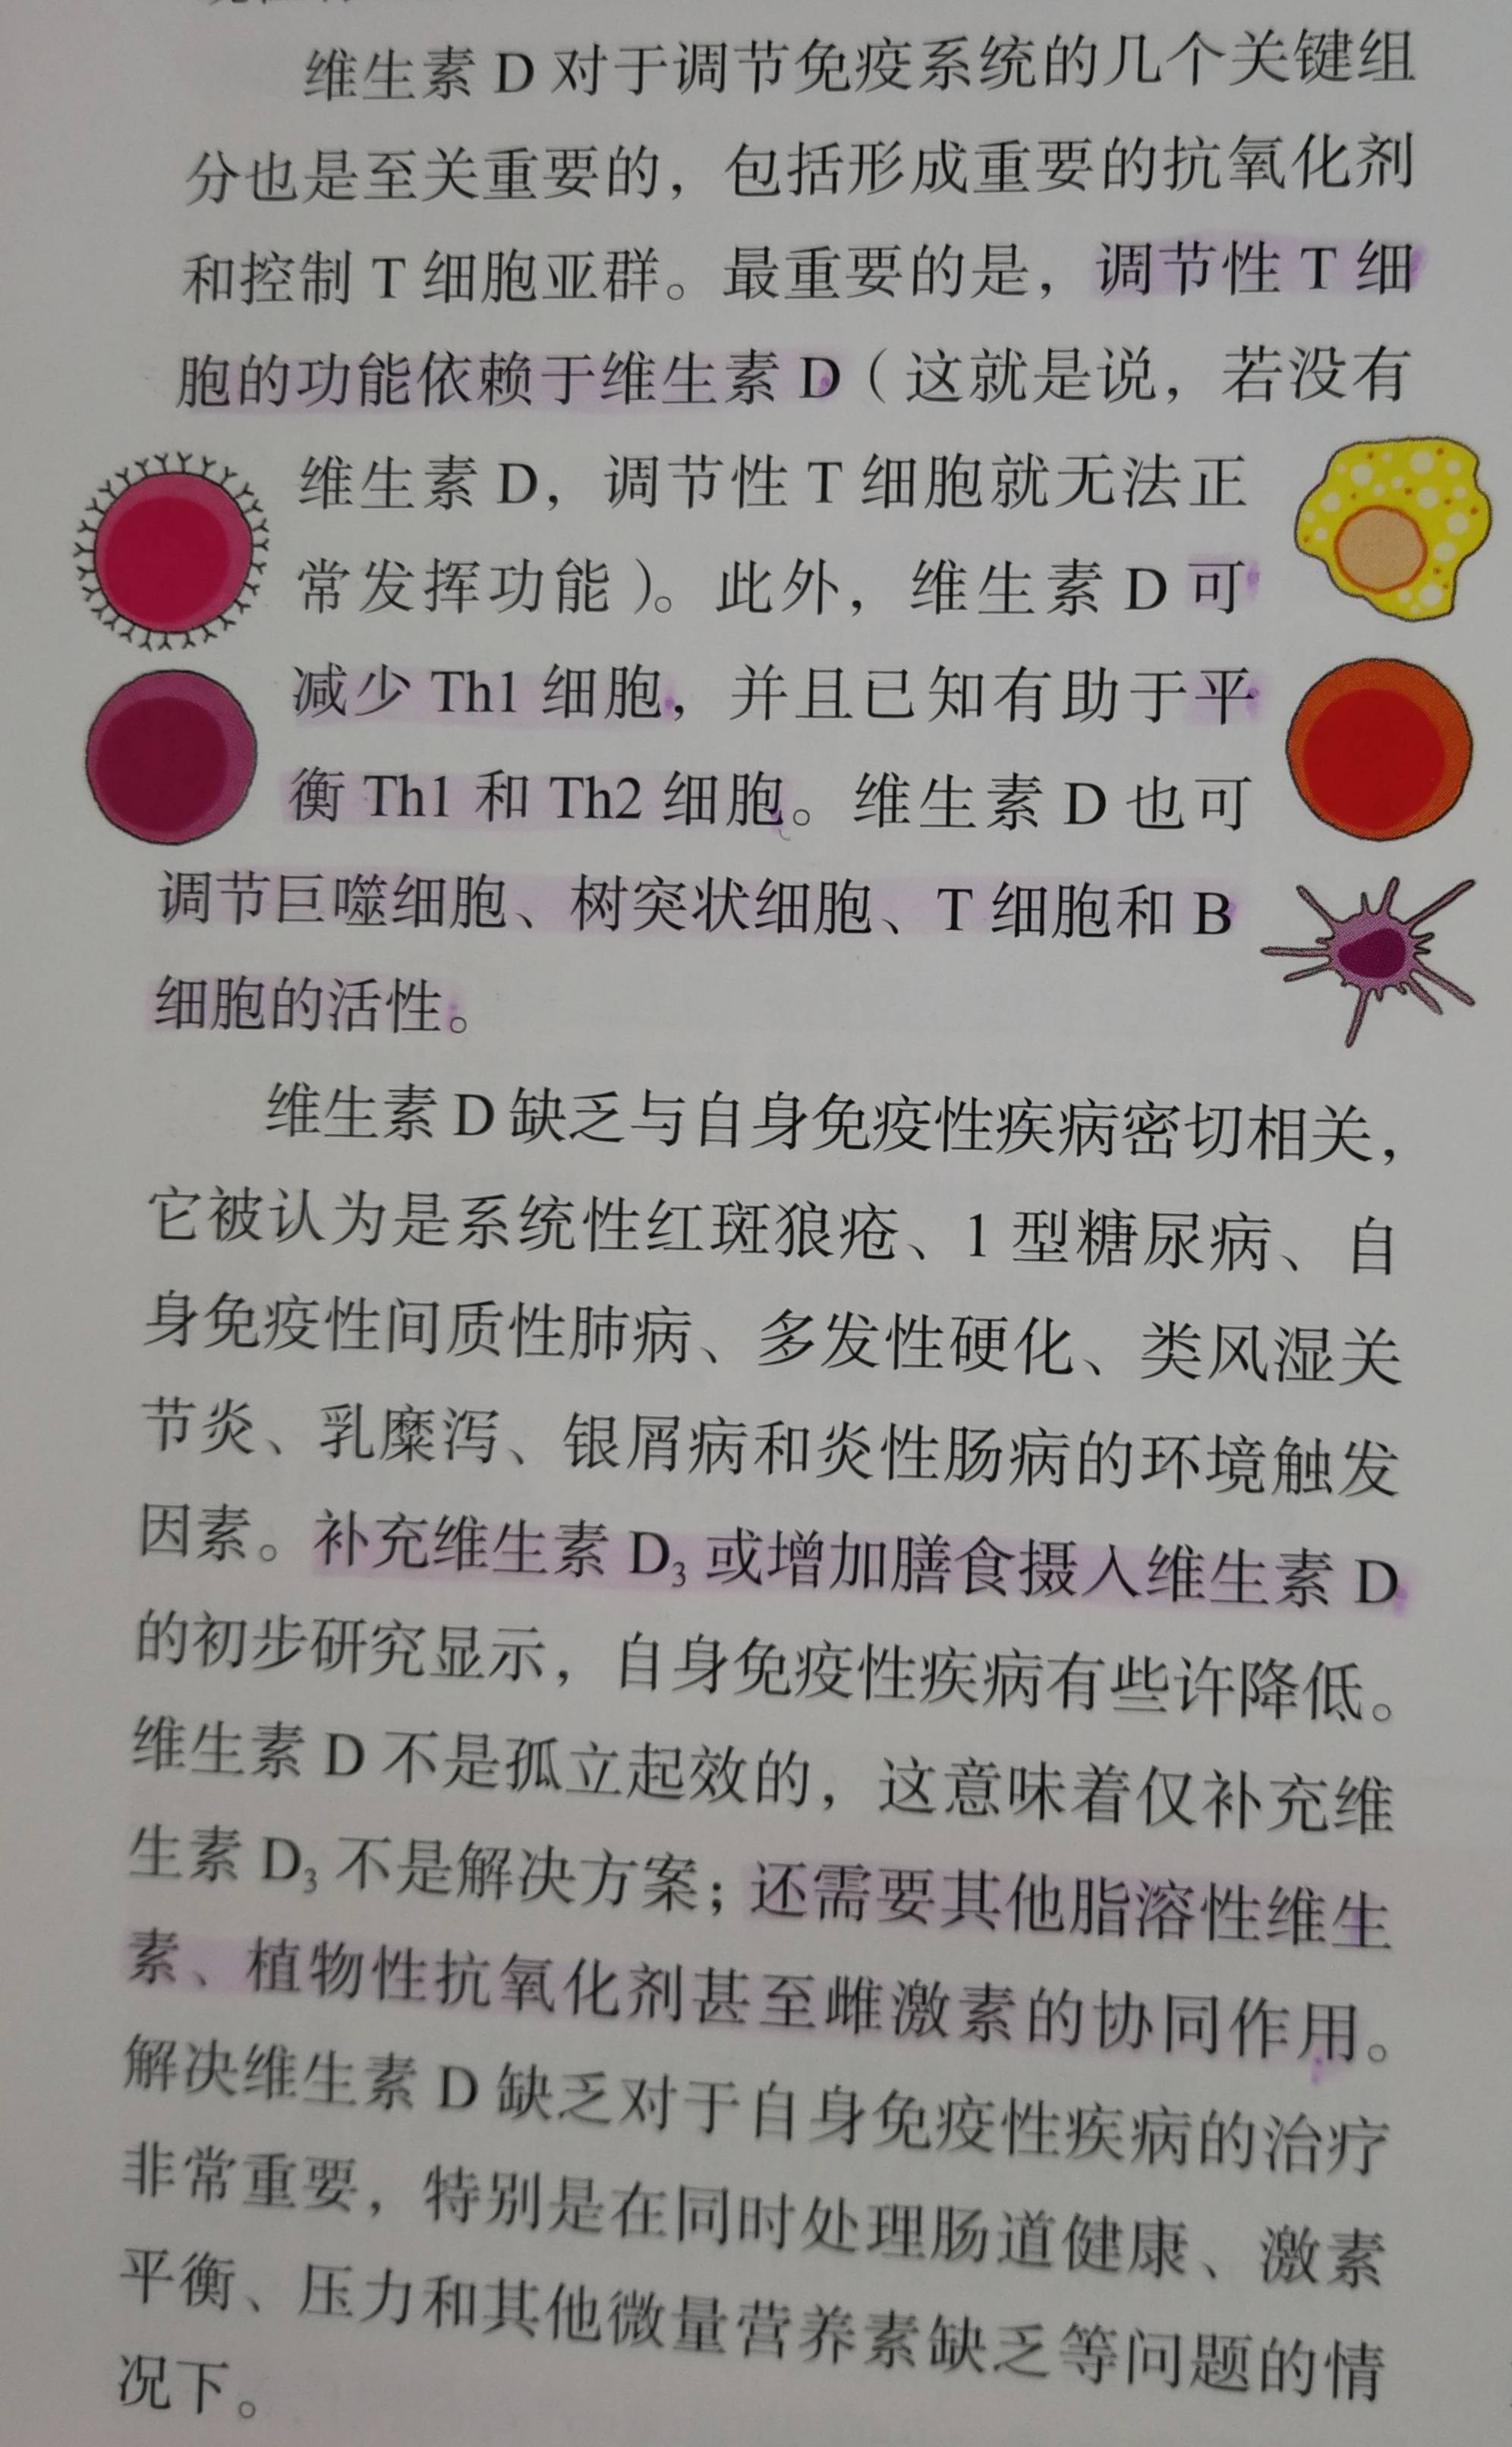 维生素 D 对于调节免疫系统的几个关键组
分也是至关重要的，包括形成重要的抗氧化剂
和控制 T 细胞亚群。最重要的是，调节性 T 细
胞的功能依赖于维生素 D（这就是说，若没有
维生素 D，调节性 T 细胞就无法正
常发挥功能）。此外，维生素 D 可
减少 Th1 细胞，并且已知有助于平
衡 Th1 和 Th2 细胞。维生素 D 也可
调节巨噬细胞、树突状细胞、T 细胞和 B
细胞的活性。
维生素 D 缺乏与自身免疫性疾病密切相关，
它被认为是系统性红斑狼疮、1 型糖尿病、自
身免疫性间质性肺病、多发性硬化、类风湿关
节炎、乳糜泻、银屑病和炎性肠病的环境触发
因素。补充维生素 D₃ 或增加膳食摄入维生素 D
的初步研究显示，自身免疫性疾病有些许降低。
维生素 D 不是孤立起效的，这意味着仅补充维
生素 D₃ 不是解决方案；还需要其他脂溶性维生
素、植物性抗氧化剂甚至雌激素的协同作用。
解决维生素 D 缺乏对于自身免疫性疾病的治疗
非常重要，特别是在同时处理肠道健康、激素
平衡、压力和其他微量营养素缺乏等问题的情
况下。